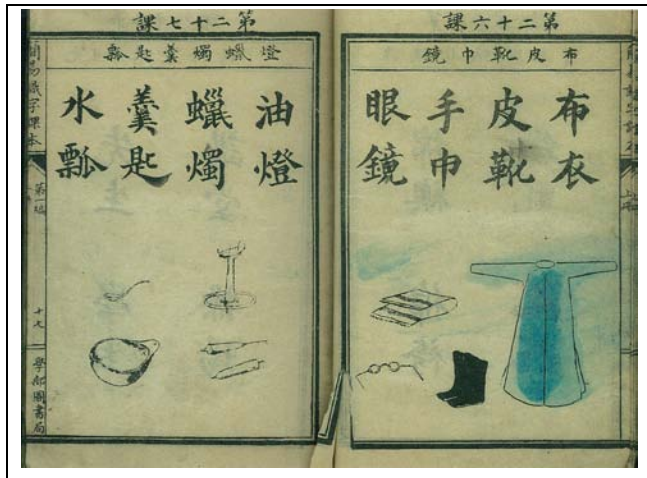 第二十六課
布皮靴巾鏡
布衣
皮靴
手巾
眼鏡
第二十七課
燈蠟燭羹匙瓢
油燈
蠟燭
羹匙
水瓢
簡易識字課本
第一編
十七
學部圖書局